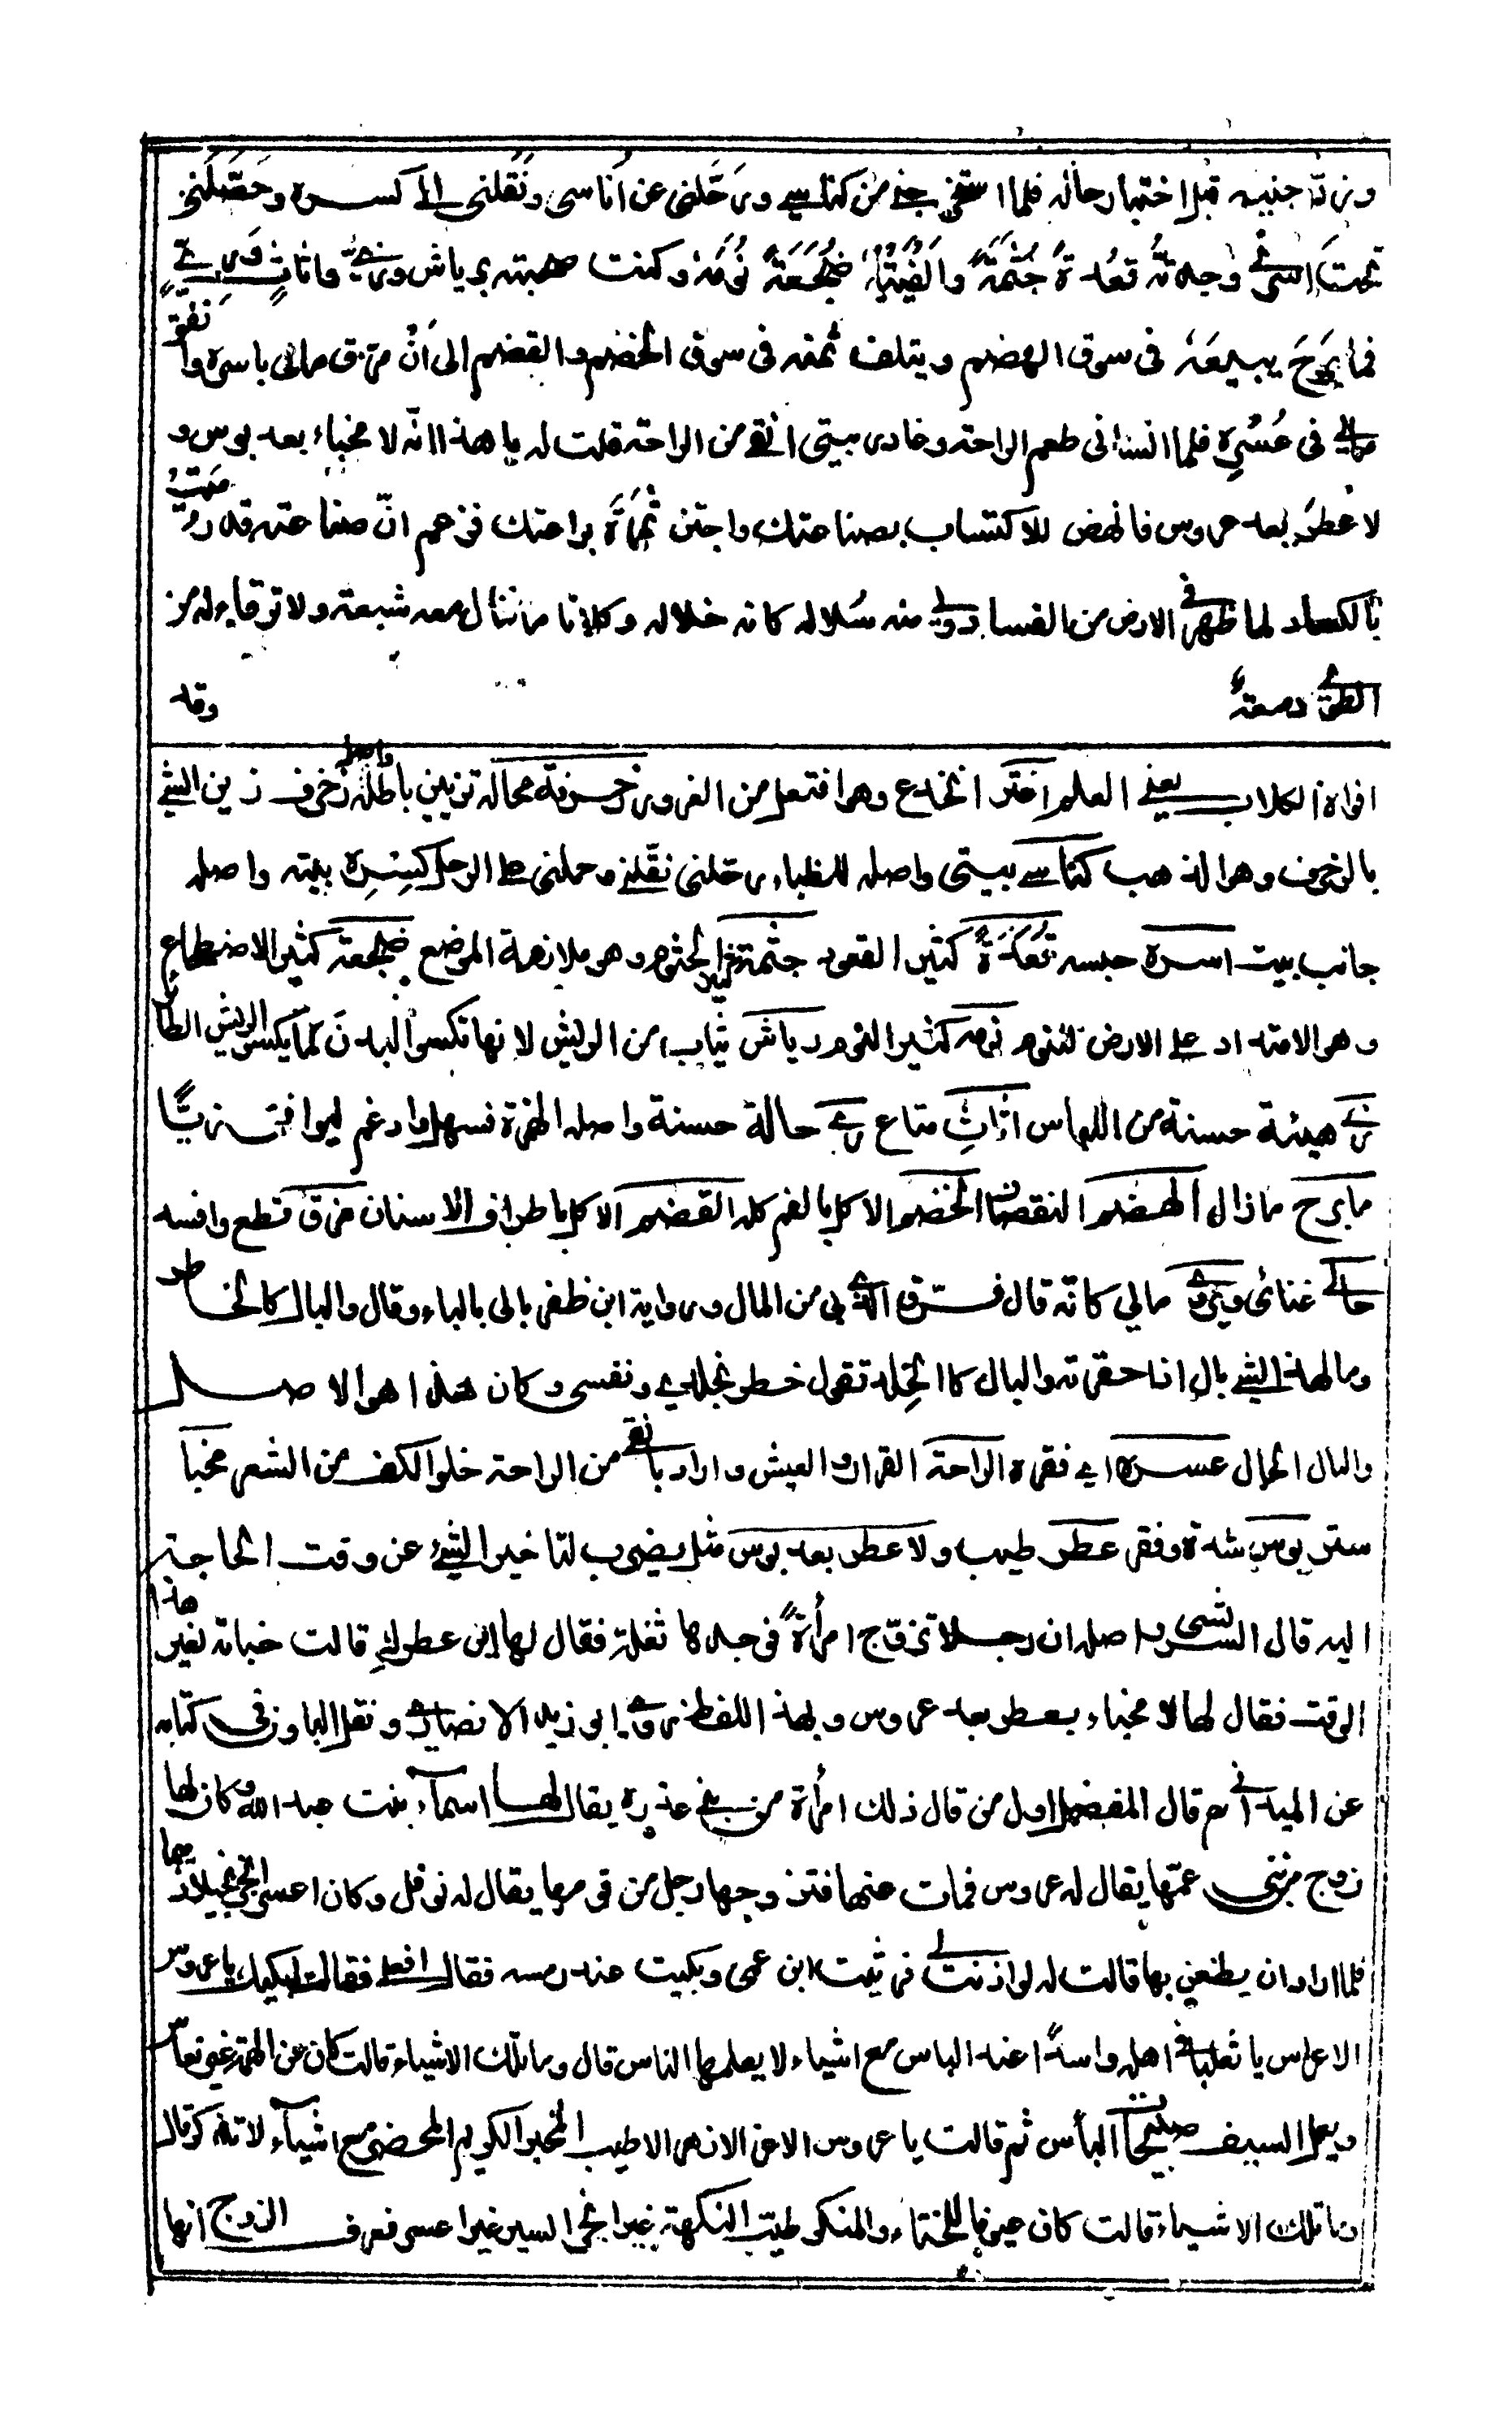 وزوّجنيه قبل اختبار حاله فلما استخرجني من كناسي ورحّلني عن أناسي ونَقَلني الى كسره وحَصَّلَني
تحتَ اسره وجدتُه قُعَدةً جُثَمَةً وألفيتُه ضُجَعَةً نُوَمَةً وكنت صحبته برياش وزيّ واثاث ورِيّ
فما بَرِحَ يبيعَهُ في سوق الهضم ويتلف ثمنه في سوق الخضم والقضم الى أنْ مزق مالي باسره وانفق
مالي في عُسْرِه فلما انساني طعم الراحة وغادر بيتي انقى من الراحة قلت له يا هذا انّه لا مخبأ بعد بوس و
لا عطرَ بعد عروس فانهض للاكتساب بصناعتك واجتن ثمرَةَ براعتك فزعم انّ صناعته قد رُمِيَتْ
بالكساد لما ظهر في الارض من الفساد ولي منه سُلاله كانه خلاله وكلانا ما ننال معه شبعة ولا ترقأ له من
الطوى دمعةٌ
وقد
افواه الكلاب يعني العلم اغترّ انخدع وهو افتعل من الغرور زخرفة محاله تزيين باطله واصل زخرف زين الشيء
بالزخرف وهو الذهب كناسي بيتي واصله للظباء رحّلني نقّلني وحملني على الرحل كِسْرِه بيته واصله
جانب بيت اسره حبسه قُعَدَةً كثير القعود جثمة كثير الجثوم وهو ملازمة الموضع ضجعة كثير الاضطجاع
وهو الامتداد على الارض للنوم نومه كثير النوم رياش ثياب من الريش لانها تكسو البدنَ كما يكسو الريش الطائر
زيّ هيئة حسنة من اللباس أثاثٍ متاع ريّ حالة حسنة واصله الهمزة فسهل وادغم ليوافق زيّا
ما برح ما زال الهضم النقصان الخضم الاكل بالفم كله القضم الاكل باطراف الاسنان مزق قطع وافسد
حالي غنائي ويروى مالي كانّه قال فرق الذي لي من المال ورواية ابن ظفر بالى بالباء وقال والبال كالخاطر
وما لهذا الشيء بال اذا حقرته والبال كالخِلد تقول خطر بخلدي ونفسي وكان هذا هو الاصل
والبال الحال عسره اي فقره الراحة القرار والعيش واراد بانقى من الراحة خلو الكف من الشعر مخبأ
ستر بوس شدة وفقر عطر طيب ولا عطر بعد بوس مثل يضرب لتاخير الشيء عن وقت الحاجة
اليه قال الشريشي واصله ان رجلا تزوّج امرأةً فوجدها تفلة فقال لها اين عطركِ قالت خباته لغير هذا
الوقت فقال لها لا مخباء بعطر بعد عروس وبهذا اللفظ رواه ابو زيد الانصاري ونقل الباوزني في كتابه
عن الميداني قال المفضل اول من قال ذلك امرأة من بني عذره يقال لها اسمآء بنت عبد الله وكان لها
زوج من بني عمّها يقال له عروس فمات عنها فتزوجها رجل من قومها يقال له نوفل وكان اعسر ابخر بخيلا دميما
فلما اراد ان يظعن بها قالت له لو اذنت لي فرثيت ابن عمي وبكيت عند رمسه فقال افعلي فقالت ابكيك يا عروس
الاعراس يا ثعلبا في اهله واسدًا عند الباس مع اشياء لا يعلمها الناس قال وما تلك الاشياء قالت كان عن الهمة غير نعاس
ويعمل السيف صبيحات البأس ثم قالت يا عروس الاغر الازهر الاطيب الخير الكريم المحضر مع اشيآء لا تذكر قال
وما تلك الاشياء قالت كان عيوفا للخنا والمنكر طيّب النكهة غير ابخر ايسر غير اعسر فعرف الزوج انها